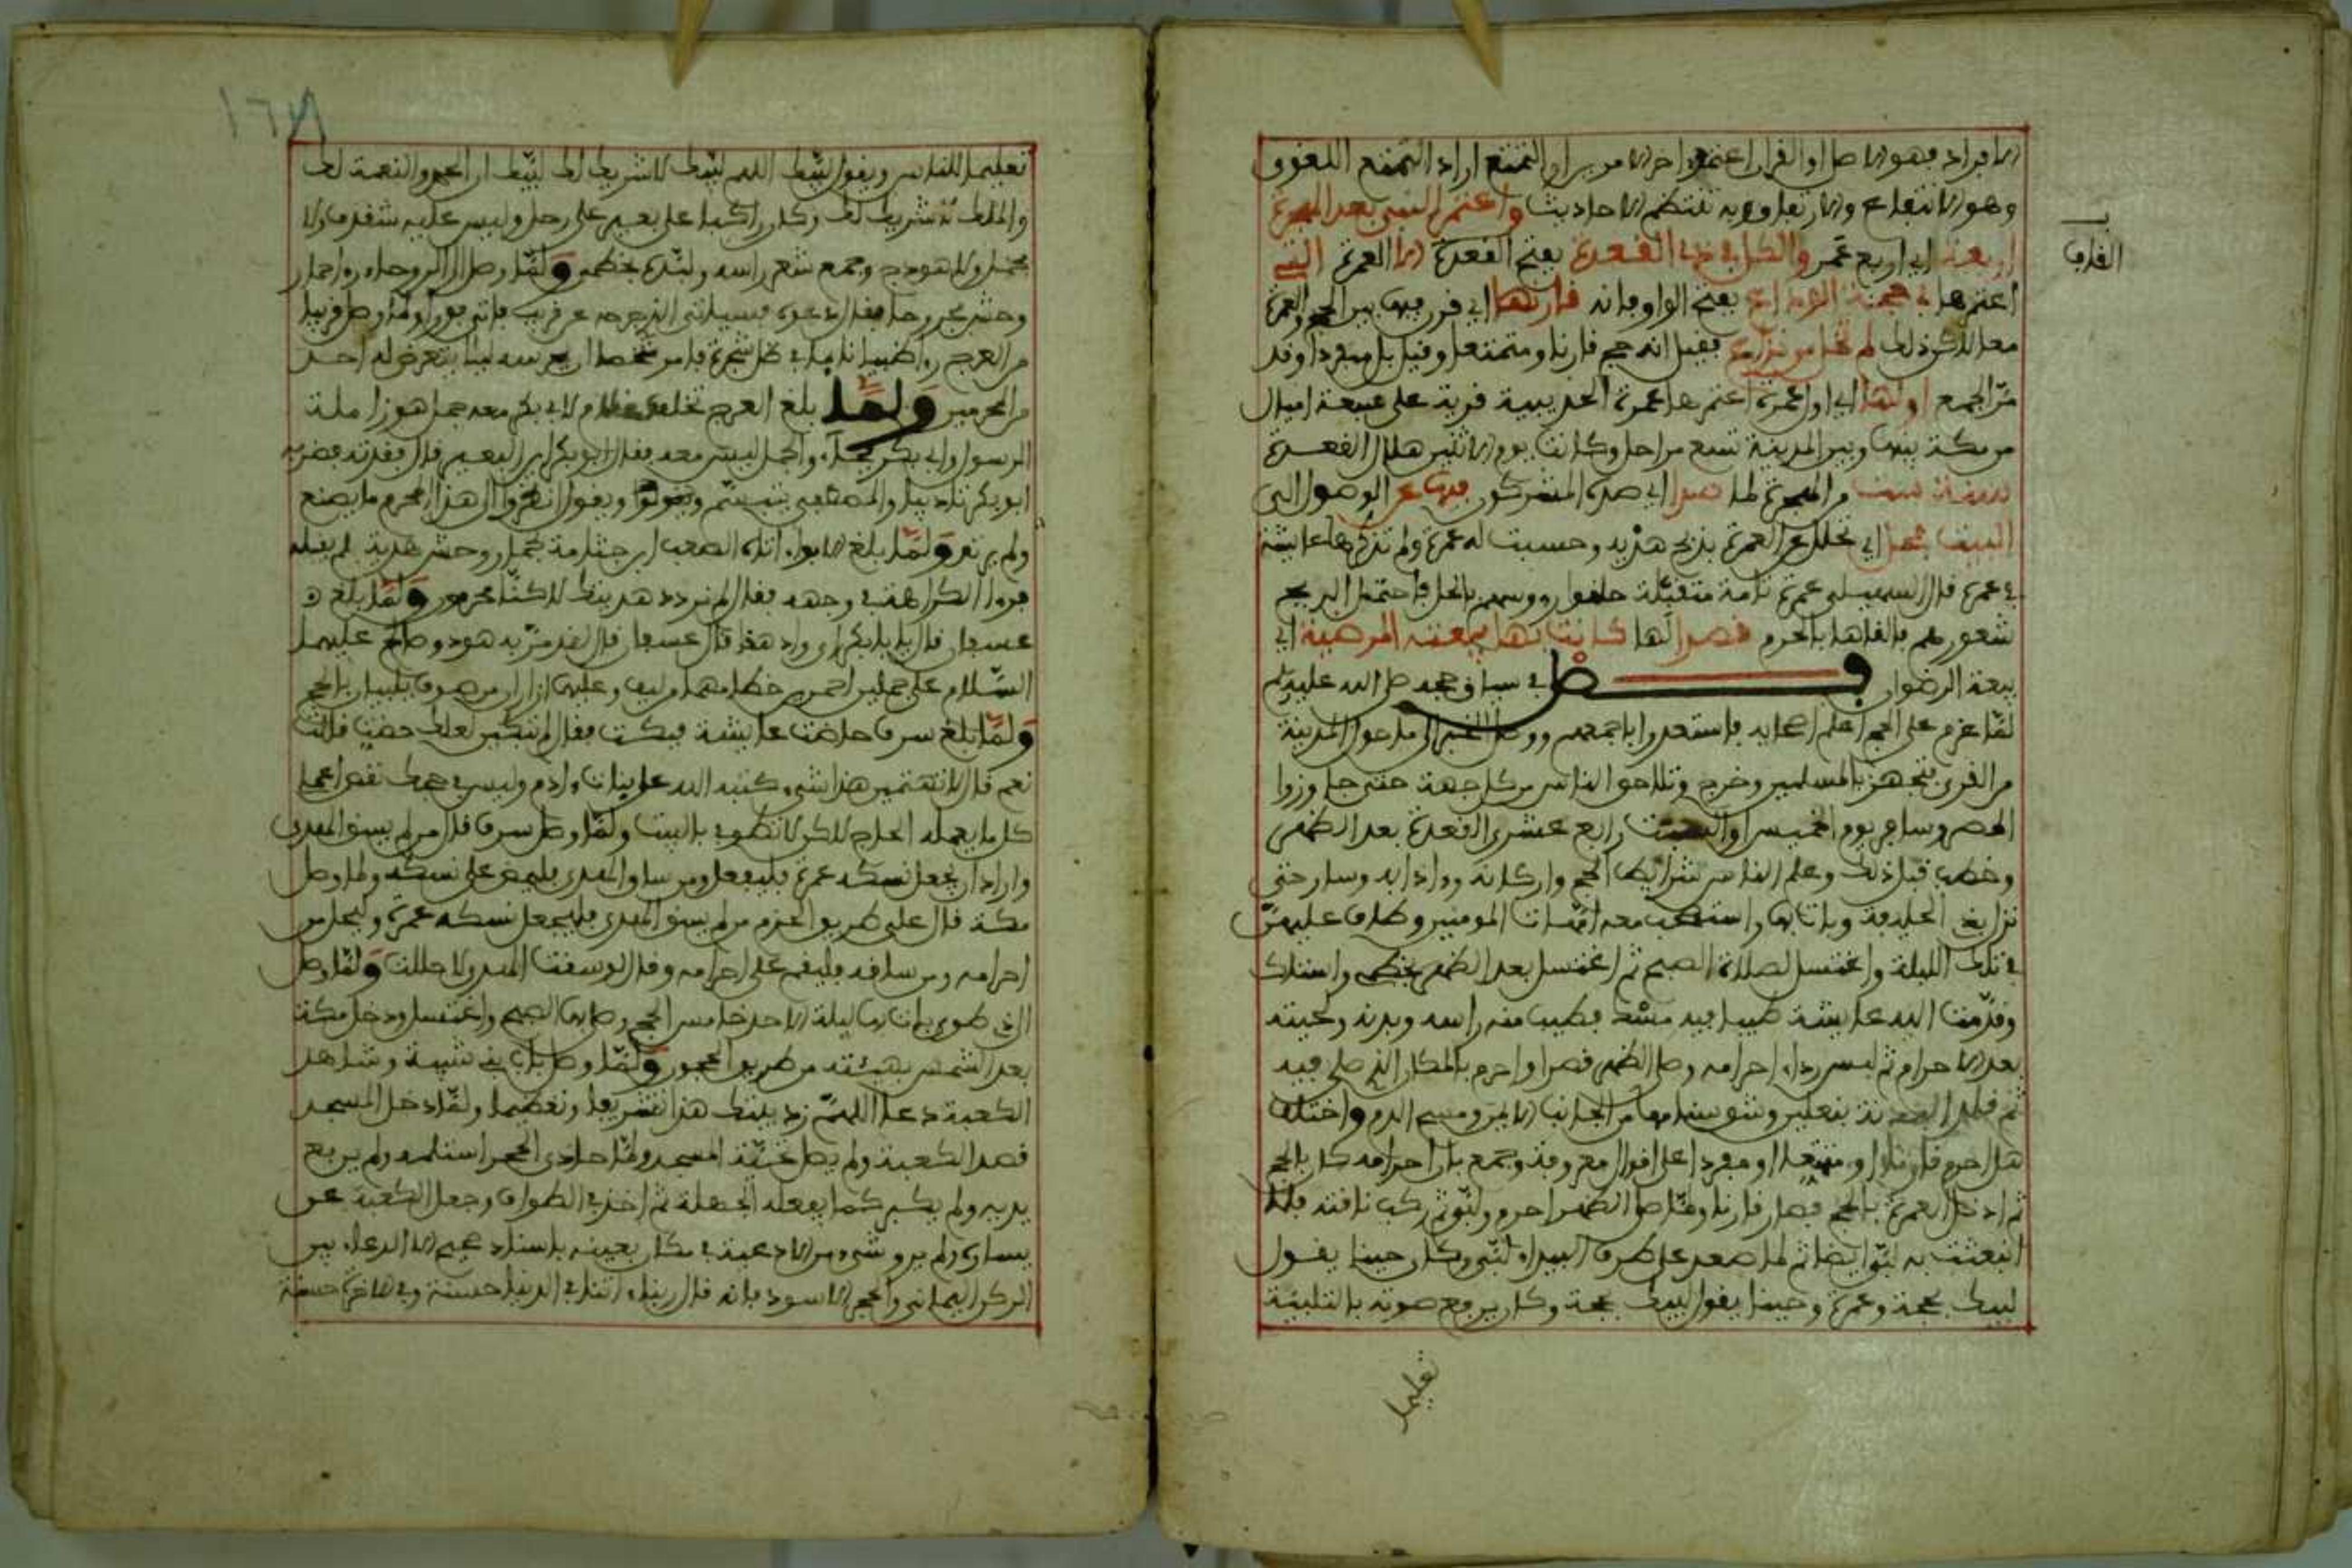 الافراد فهو الاصل او القران اعتمر اخر الامرين او التمتع اراد التمتع اللغوي
وهو الانتفاع والارتفاق وبه تنتظم الاحاديث واعتمر النبي بعد الهجرة
اربعة اي اربع عمر والكل في ذي القعدة بفتح القعدة الا العمرة التي
اعتمرها في حجة الوداع بفتح الواو فانه قارنها اي قرن فيها بين الحج والعمرة
معا لكن ذلك لم يخل من نزاع فقيل انه حج قارنا ومتمتعا وقيل بل مفردا وقد
مر الجمع اولها اي اول عمرة اعتمرها عمرة الحديبية قرية على تسعة اميال
من مكة بينها وبين المدينة تسع مراحل وكانت يوم الاثنين هلال القعدة
سنة ست من الهجرة لما صد اي صده المشركون فيها عن الوصول الى
البيت فحل اي تحلل عن العمرة بذبح هديه وحسبت له عمرة ولم تذكرها عائشة
في عمره قال السهيلي عمرة تامة متقبلة حلقوا رووسهم بالحل فاحتمل الريح
شعورهم فالقاها بالحرم قصدا لها كانت بها بيعته المرضية اي
بيعة الرضوان فصل في سياق حجه صلى الله عليه وسلم
لما عزم على الحج اعلم اصحابه فاستعدوا باجمعهم ووصل الخبر الى ما حول المدينة
من القرى فتجهز بالمسلمين وخرج وتلاحق الناس من كل جهة حتى جاوزوا
الحصر وسافر يوم الخميس او السبت رابع عشري القعدة بعد الظهر
وخطب قبل ذلك وعلم الناس شرائط الحج واركانه وءادابه وسار حتى
نزل بذي الحليفة وبات بها واستصحب معه امهات المومنين وطاف عليهن
في تلك الليلة واغتسل لصلاة الصبح ثم اغتسل بعد الظهر بخطمي واشنان
وقدمت اليه عائشة طيبا فيه مسك فطيب منه راسه وبدنه ولحيته
بعد الاحرام ثم لبس رداء احرامه وصلى الظهر قصرا واحرم بالمكان الذي صلى فيه
ثم قلد البدنة بنعلين وشق سنامها من الجانب الايمن ومسح الدم واختلف
هل احرم قارنا او متمتعا او مفردا على اقوال معروفة وجمع بان احرامه كان بالحج
ثم ادخل العمرة بالحج فصار قارنا ولما صلى الظهر احرم ولبى ثم ركب ناقته فلما
انبعثت به لبى ايضا ثم لما صعد على طرف البيداء لبى وكان حينا يقول
لبيك بحجة وعمرة وحينا يقول لبيك بحجة وكان يرفع صوته بالتلبية
تعليما
تعليما للناس ويقول لبيك اللهم لبيك لا شريك لك لبيك ان الحمد والنعمة لك
والملك لا شريك لك وكان راكبا على بعير على رحل وليس عليه شقذف ولا
محمل ولا هودج وجمع شعر راسه ولبده بخطمي ولما وصل الى الروحاء رءا حمار
وحش عقر وحل فقال دعوه فسياتي الذي جرحه عن قريب فاتى فورا ولما وصل قريبا
من العرج رءا ظبيا نايما في ظل شجرة فامر شخصا ان يحرسه ليلا يتعرض له احد
من المحرمين ولما بلغ العرج تخلف غلام لابي بكر معه جمل هو زاملة
الرسول وابي بكر فجاء والجمل ليس معه فقال ابو بكر اين البعير قال فقدته فضربه
ابو بكر تاديبا والمصطفى يتبسم ويقول انظروا الى هذا المحرم ما يصنع
ولم يزد ولما بلغ الابواء اتاه الصعب ابن جثامة بحمار وحش هدية لم يقبله
فراى الكراهة في وجهه فقال لم نردد هديتك الا لكنا محرمون ولما بلغ و
عسفان قال يابا بكر اي واد هذا قال عسفان قال لقد مر به هود وصالح عليهما
السلام على جملين احمرين خطامهما من ليف وعليهما ازار من صوف يلبيان بالحج
ولما بلغ سرف حاضت عائشة فبكت فقال لم تبكين لعلك حضت قالت
نعم قال لا تهتمين هذا شيء كتبه الله على بنات ءادم وليس في حجك نقص اعملي
كل ما يعمله الحاج لكن لا تطوفي بالبيت ولما وصل سرف قال من لم يسق الهدي
واراد ان يجعل نسكه عمرة فليفعل ومن ساق الهدي فليمض على نسكه ولما وصل
مكة قال على طريق العزم من لم يسق الهدي فليجعل نسكه عمرة وليحل من
احرامه ومن ساقه فليقم على احرامه وقال لو سقت الهدي لا حللت ولما وصل
الى ذي طوى بات بها ليلة الاحد خامس الحجة وصلى بها الصبح واغتسل ودخل مكة
بعد الشمس بهيئته من طريق الحجون ولما وصل باب بني شيبة وشاهد
الكعبة دعا اللهم زد بيتك هذا تشريفا وتعظيما ولما دخل المسجد
قصد الكعبة ولم يصل تحية المسجد ولما حاذى الحجر استلمه ولم يرفع
يديه ولم يكبر كما يفعله الجهلة ثم اخذ في الطواف وجعل الكعبة عن
يساره ولم يرو شيء من الادعية في مكان بعينه باسناد صحيح الا الدعاء بين
الركن اليماني والحجر الاسود فانه قال ربنا ءاتنا في الدنيا حسنة وفي الاخرة حسنة